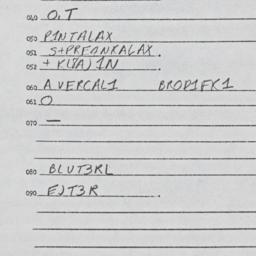 040 O.T
050 P1NTALAX
051 S+PREDNKALAX.
052 + K(8A)1N
060 AVERCAL1 BROD1FK1
061 O
070 —
080 BLUT3RL
090 EJT3R